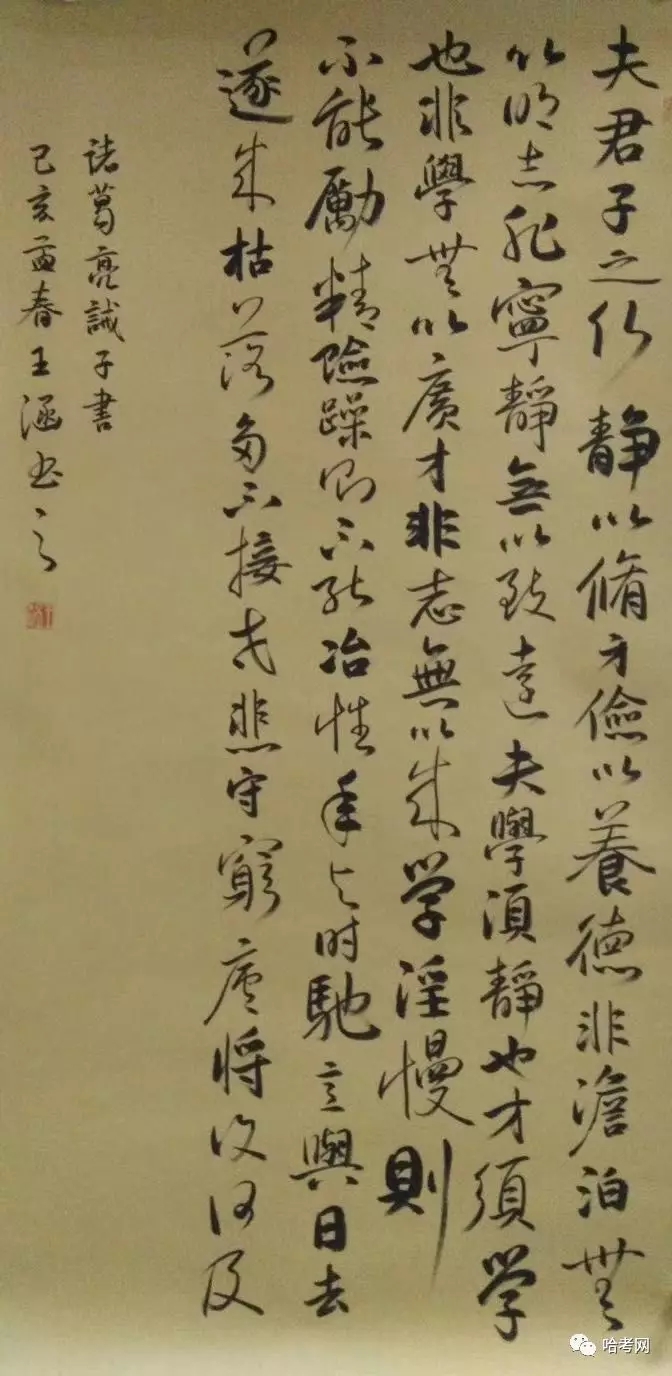 夫君子之行靜以脩身儉以養德非澹泊無
以明志非寧靜無以致遠夫學須靜也才須學
也非學無以廣才非志無以成學淫慢則
不能勵精險躁則不能冶性年與時馳意與日去
遂成枯落多不接世悲守窮廬將復何及
諸葛亮誡子書
己亥孟春王涵书之
哈考网